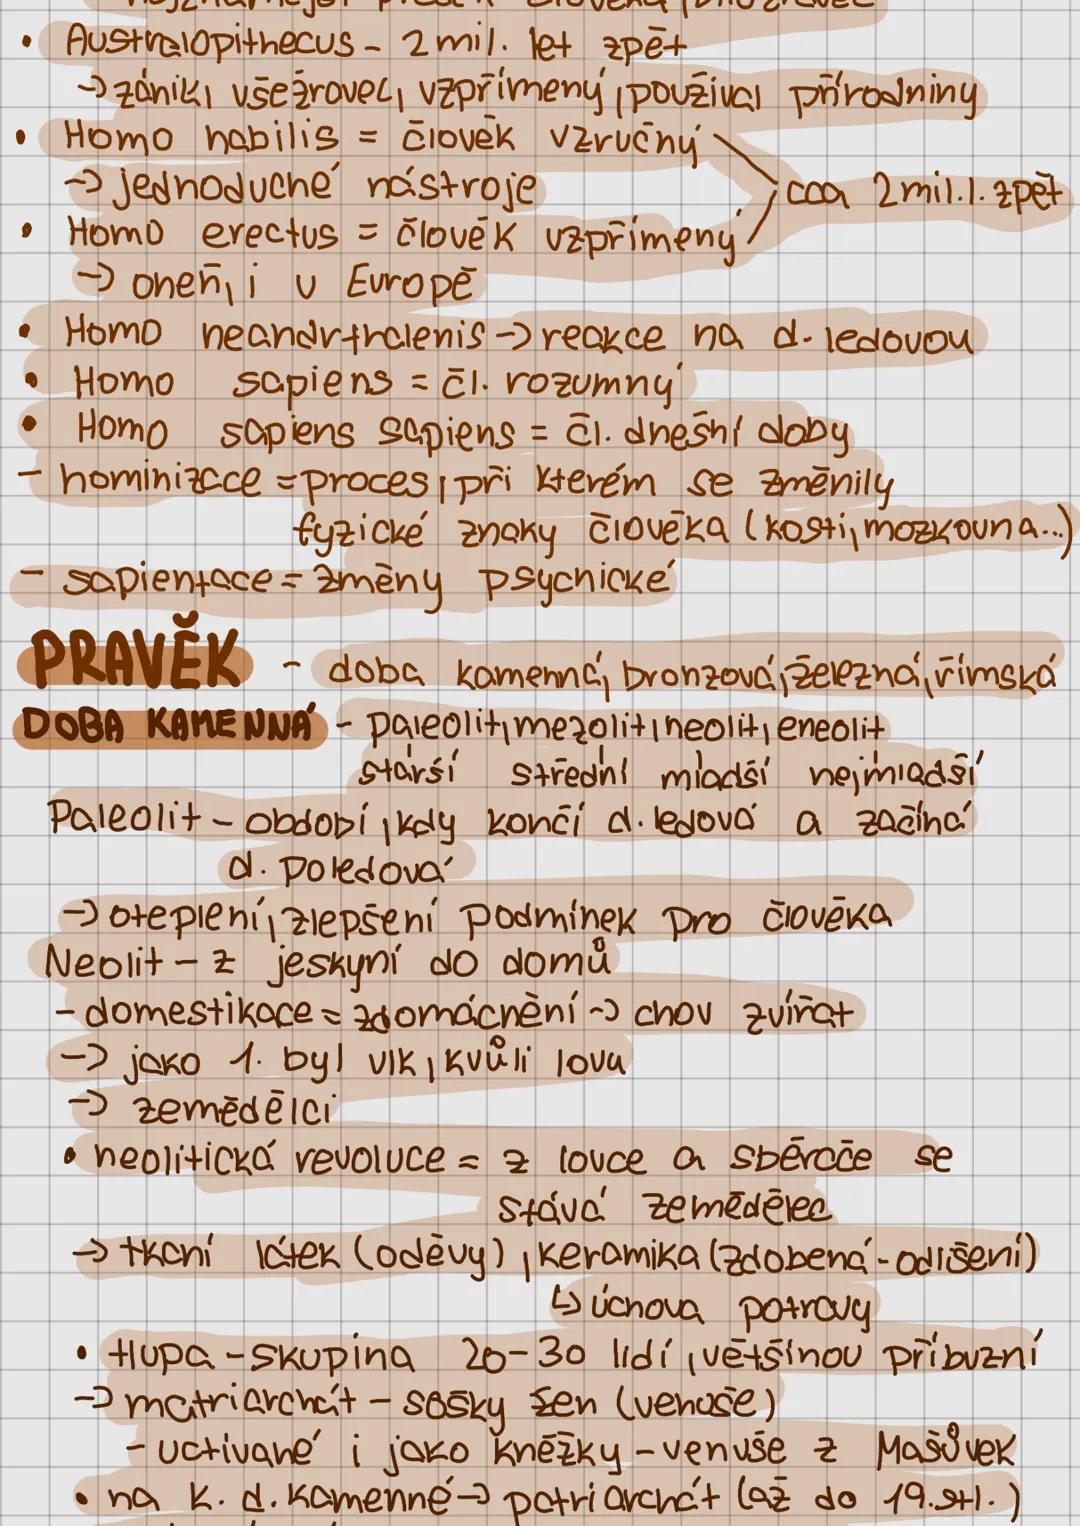 • Australopithecus - 2 mil. let zpět
→ zánik, všežrovec, vzpřímený, používal přírodniny
• Homo habilis = člověk vzručný
→ jednoduché nástroje
cca 2 mil. l. zpět
• Homo erectus = člověk vzpřímený
→ oheň, i v Evropě
• Homo neandrthalenis → reakce na d. ledovou
• Homo sapiens = čl. rozumný
• Homo sapiens sapiens = čl. dnešní doby
- hominizace = proces, při kterém se změnily
fyzické znaky člověka (kosti, mozkovna...)
- sapientace = změny psychické
PRAVĚK - doba kamenná, bronzová, železná, římská
DOBA KAMENNÁ - paleolit, mezolit, neolit, eneolit
starší střední mladší nejmladší
Paleolit - období, kdy končí d. ledová a začíná
d. poledová
→ oteplení, zlepšení podmínek pro člověka
Neolit - z jeskyní do domů
- domestikace = zdomácnění → chov zvířat
→ jako 1. byl vlk, kvůli lovu
→ zemědělci
• neolitická revoluce = z lovce a sběrače se
stává zemědělec
→ tkaní látek (oděvy), keramika (zdobená - odlišení)
↳ úchova potravy
• tlupa - skupina 20-30 lidí, většinou příbuzní
→ matriarchát - sošky žen (venuše)
- uctívané i jako kněžky - venuše z Mašůvek
• na k. d. kamenné → patriarchát (až do 19. stl.)